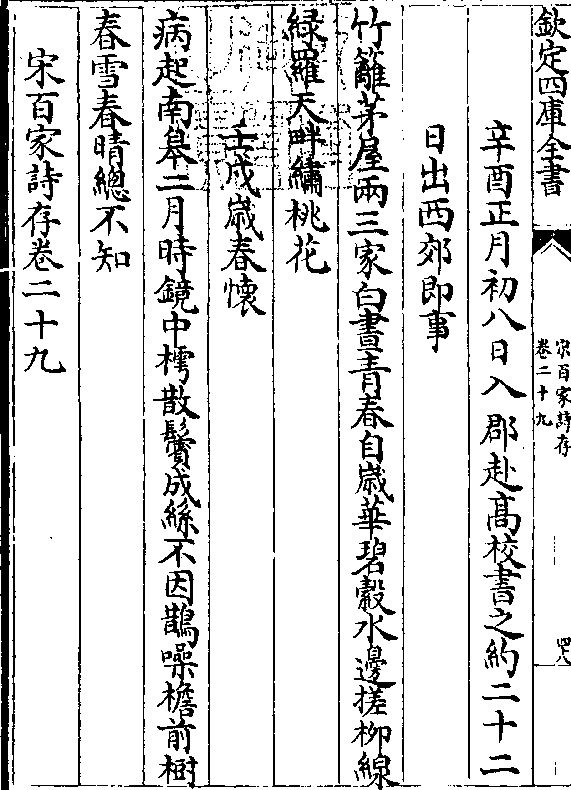 欽定四庫全書
宋百家詩存
卷二十九
四八
辛酉正月初八日入郡赴髙校書之約二十二
日出西郊即事
竹籬茅屋兩三家白晝青春自嵗華碧縠水邊搓柳線
緑羅天畔繡桃花
壬戌嵗春懐
病起南皋二月時鏡中樗散鬢成絲不因鵲噪檐前樹
春雪春晴總不知
宋百家詩存卷二十九